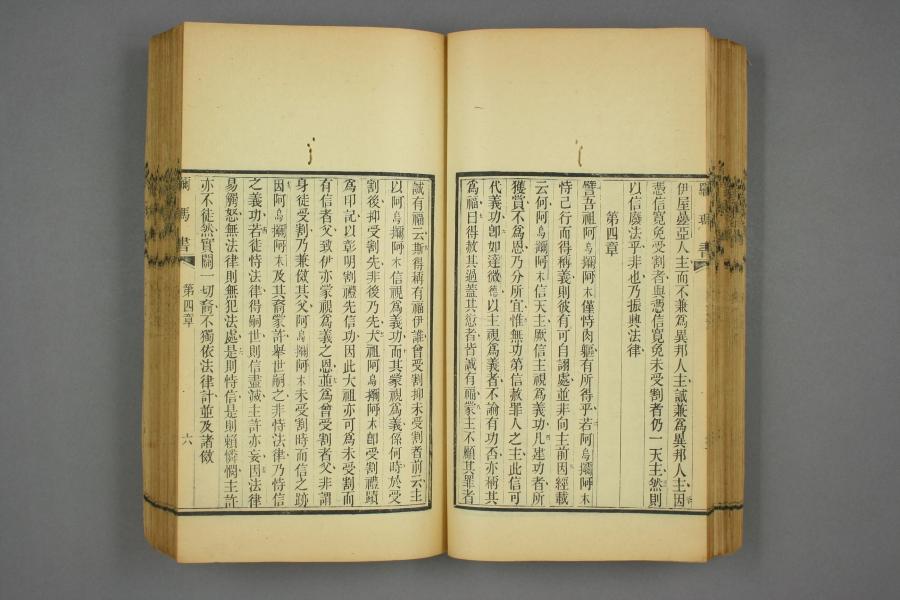 伊屋叟亞人主而不兼爲異邦人主誠兼爲異邦人主因
憑信寬免受割者與憑信寬免未受割者仍一天主然則
以信廢法乎非也乃振興法律
第四章
譬吾祖阿烏攔阿木僅恃肉軀有所得乎若阿烏攔阿木
恃己行而得稱義則彼有可自詡處並非向主前因經載
云何阿烏攔阿木信天主厥信主視爲義功凡建功者所
獲賞不爲恩乃分所宜惟無功第信赦罪人之主此信可
代義功卽如達微德以主視爲義者不論有功否亦稱其
爲福曰得赦其過蓋其愆者皆誠有福蒙主不顧其罪者
誠有福云斯得稱有福伊誰曾受割抑未受割者前云主
以阿烏攔阿木信視爲義功而其蒙視爲義係何時於受
割後抑受割先非後乃先大祖阿烏攔阿木卽受割禮蹟
爲印記以彰明割禮先信功因此大祖亦可爲未受割而
有信者父致伊亦蒙視爲義之恩並爲曾受割者父非謂
身徒受割乃兼傚其父阿烏攔阿木未受割時而信之跡
因阿烏攔阿木及其裔蒙許舉世嗣之非恃法律乃恃信
之義功若徒恃法律得嗣世則信盡滅主許亦妄因法律
易觸怒無法律則無犯法處是則恃信是則賴憐憫主許
亦不徒然實關一切裔不獨依法律計並及諸傚
馬書
第四章
六